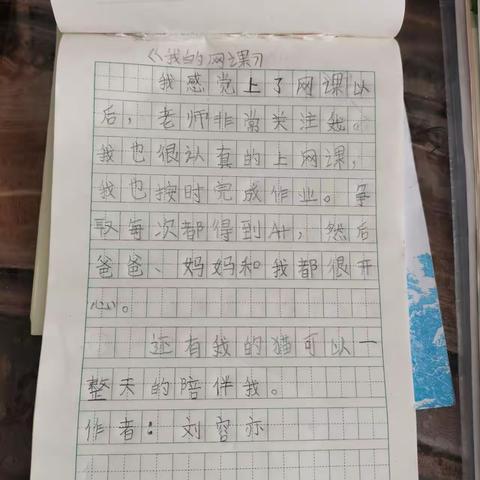 《我的网课》
我感觉上了网课以
后，老师非常关注我。
我也很认真的上网课，
我也按时完成作业。争
取每次都得到A+，然后
爸爸、妈妈和我都很开
心。
还有我的猫可以一
整天的陪伴我。
作者：刘容亦